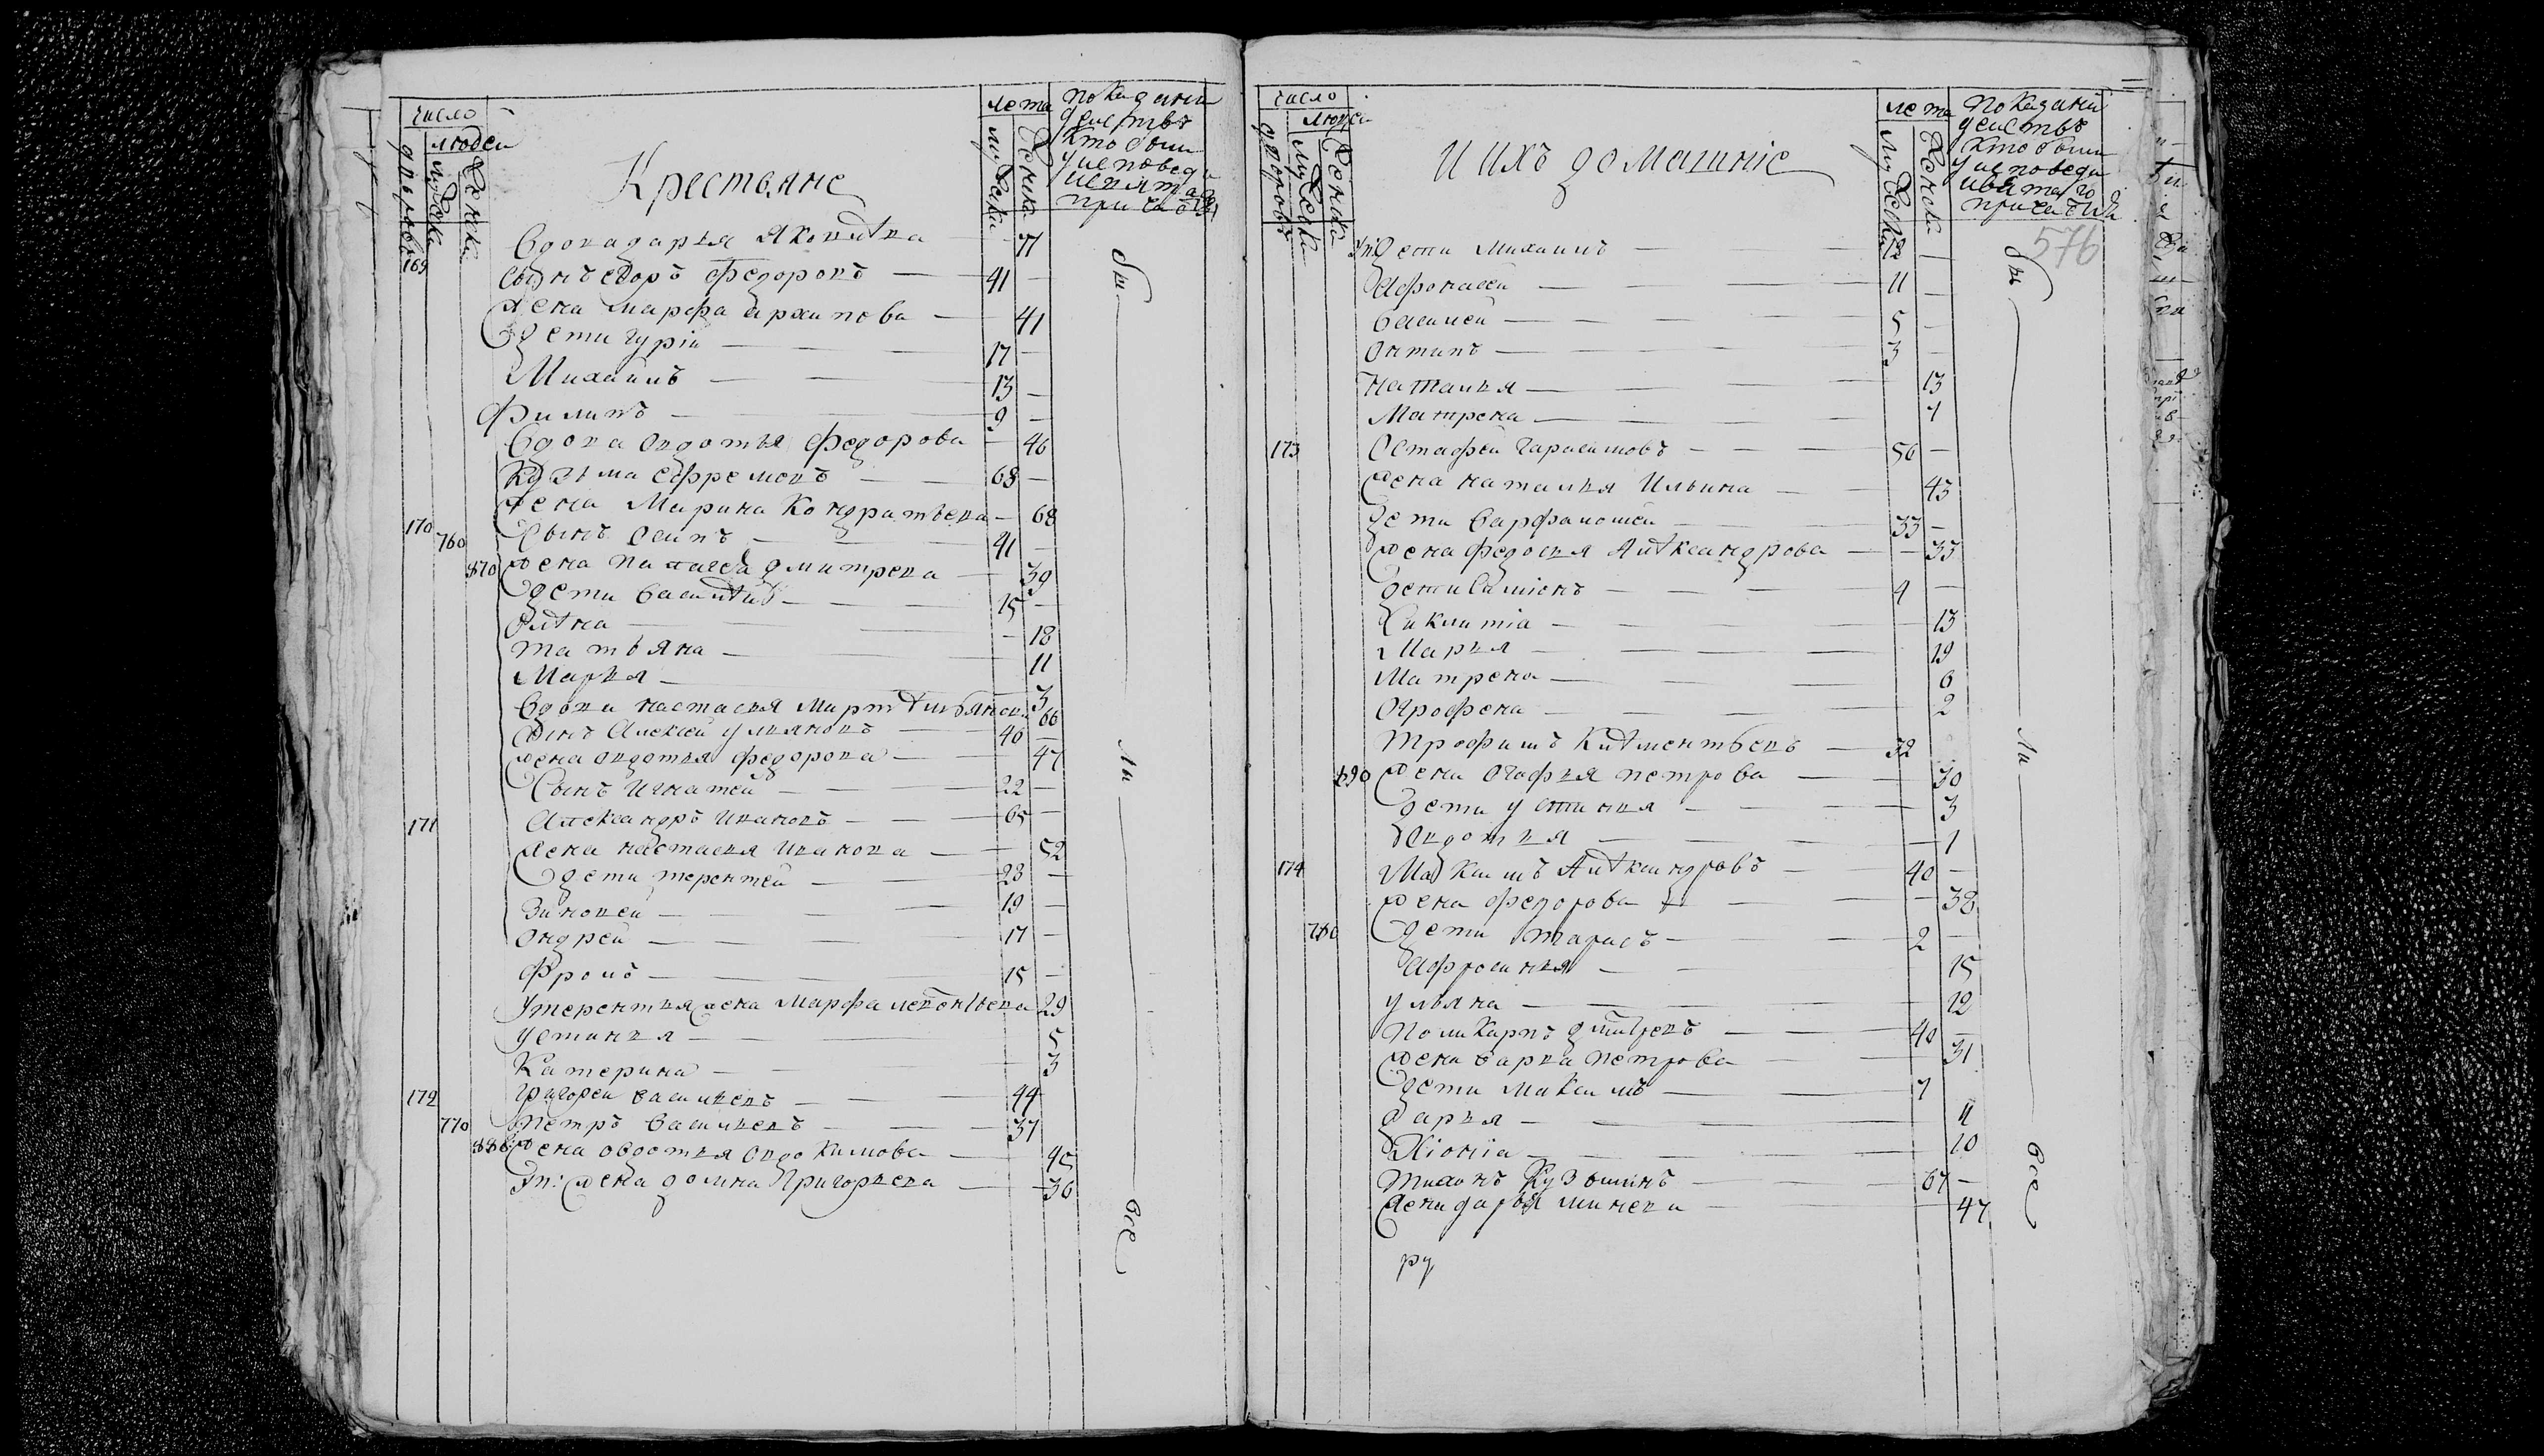 число
людей
дворовъ
мужеска
женска
Крестьяне
лета
мужеска
женска
показани
действъ
кто были
у исповеди
и святаго
причастия
169
Вдова дарья Яковлева — 71
сынъ едоръ Федоровъ — 41 —
жена марфа архипова — 41
дети гурiи — 17 —
Михаилъ — 13 —
Филипъ — 9 —
Вдова овдотья федорова — 46
Кузьма ефремовъ — 68 —
жена Марина Кондратьева — 68
170
760
сынъ осипъ — 41 —
870
жена палагея дмитрева — 39
дети василеи — 15 —
Олена — 18
татьяна — 11
Марья — 3
Вдова настасья — 66
сынъ Алексей ульяновъ — 46 —
жена овдотья федорова — 47
сынъ игнатей — 22 —
171
Александръ ивановъ — 65 —
жена настасья иванова — 52
дети терентей — 23 —
Зиновеи — 19 —
ондрей — 17 —
Фролъ — 15 —
У терентья жена марфа леонтьева 29
устинья — 5
Катерина — 3
172
григореи васильевъ — 44
770
петръ васильевъ — 37
880
жена овдотья овдокимова — 45
жена домна григорьева — 36
бы
ли
все
число
людей
дворовъ
мужеска
женска
И ихъ домашнiе
лета
мужеска
женска
показани
действъ
кто были
у исповеди
и святаго
причастия
576
дети михаилъ — 12 —
Афонасей — 11 —
василей — 5 —
онтипъ — 3 —
наталья — 13
Матрена — 7
173
Остафеи гарасимовъ — 56 —
жена наталья Ильина — 43
дети варфаломеи — 33 —
жена федосья Александрова — 33
дети — 4 —
— 13
Марья — 19
Матрена — 6
Огрофена — 2
трофимъ Клементьевъ — 32
890
жена огафья петрова — 30
дети устинья — 3
овдотья — 1
174
Максимъ Александровъ — 40 —
жена федорова — 38
780
дети тарасъ — 2 —
Афросинья — 15
ульяна — 12
Поликарпъ дмитревъ — 40 —
жена варва петрова — 31
дети Максимъ — 7
дарья — 11
Хионiia — 10
тихонъ Кузминъ — 67 —
жена дарья минева — 47
ру
бы
ли
все